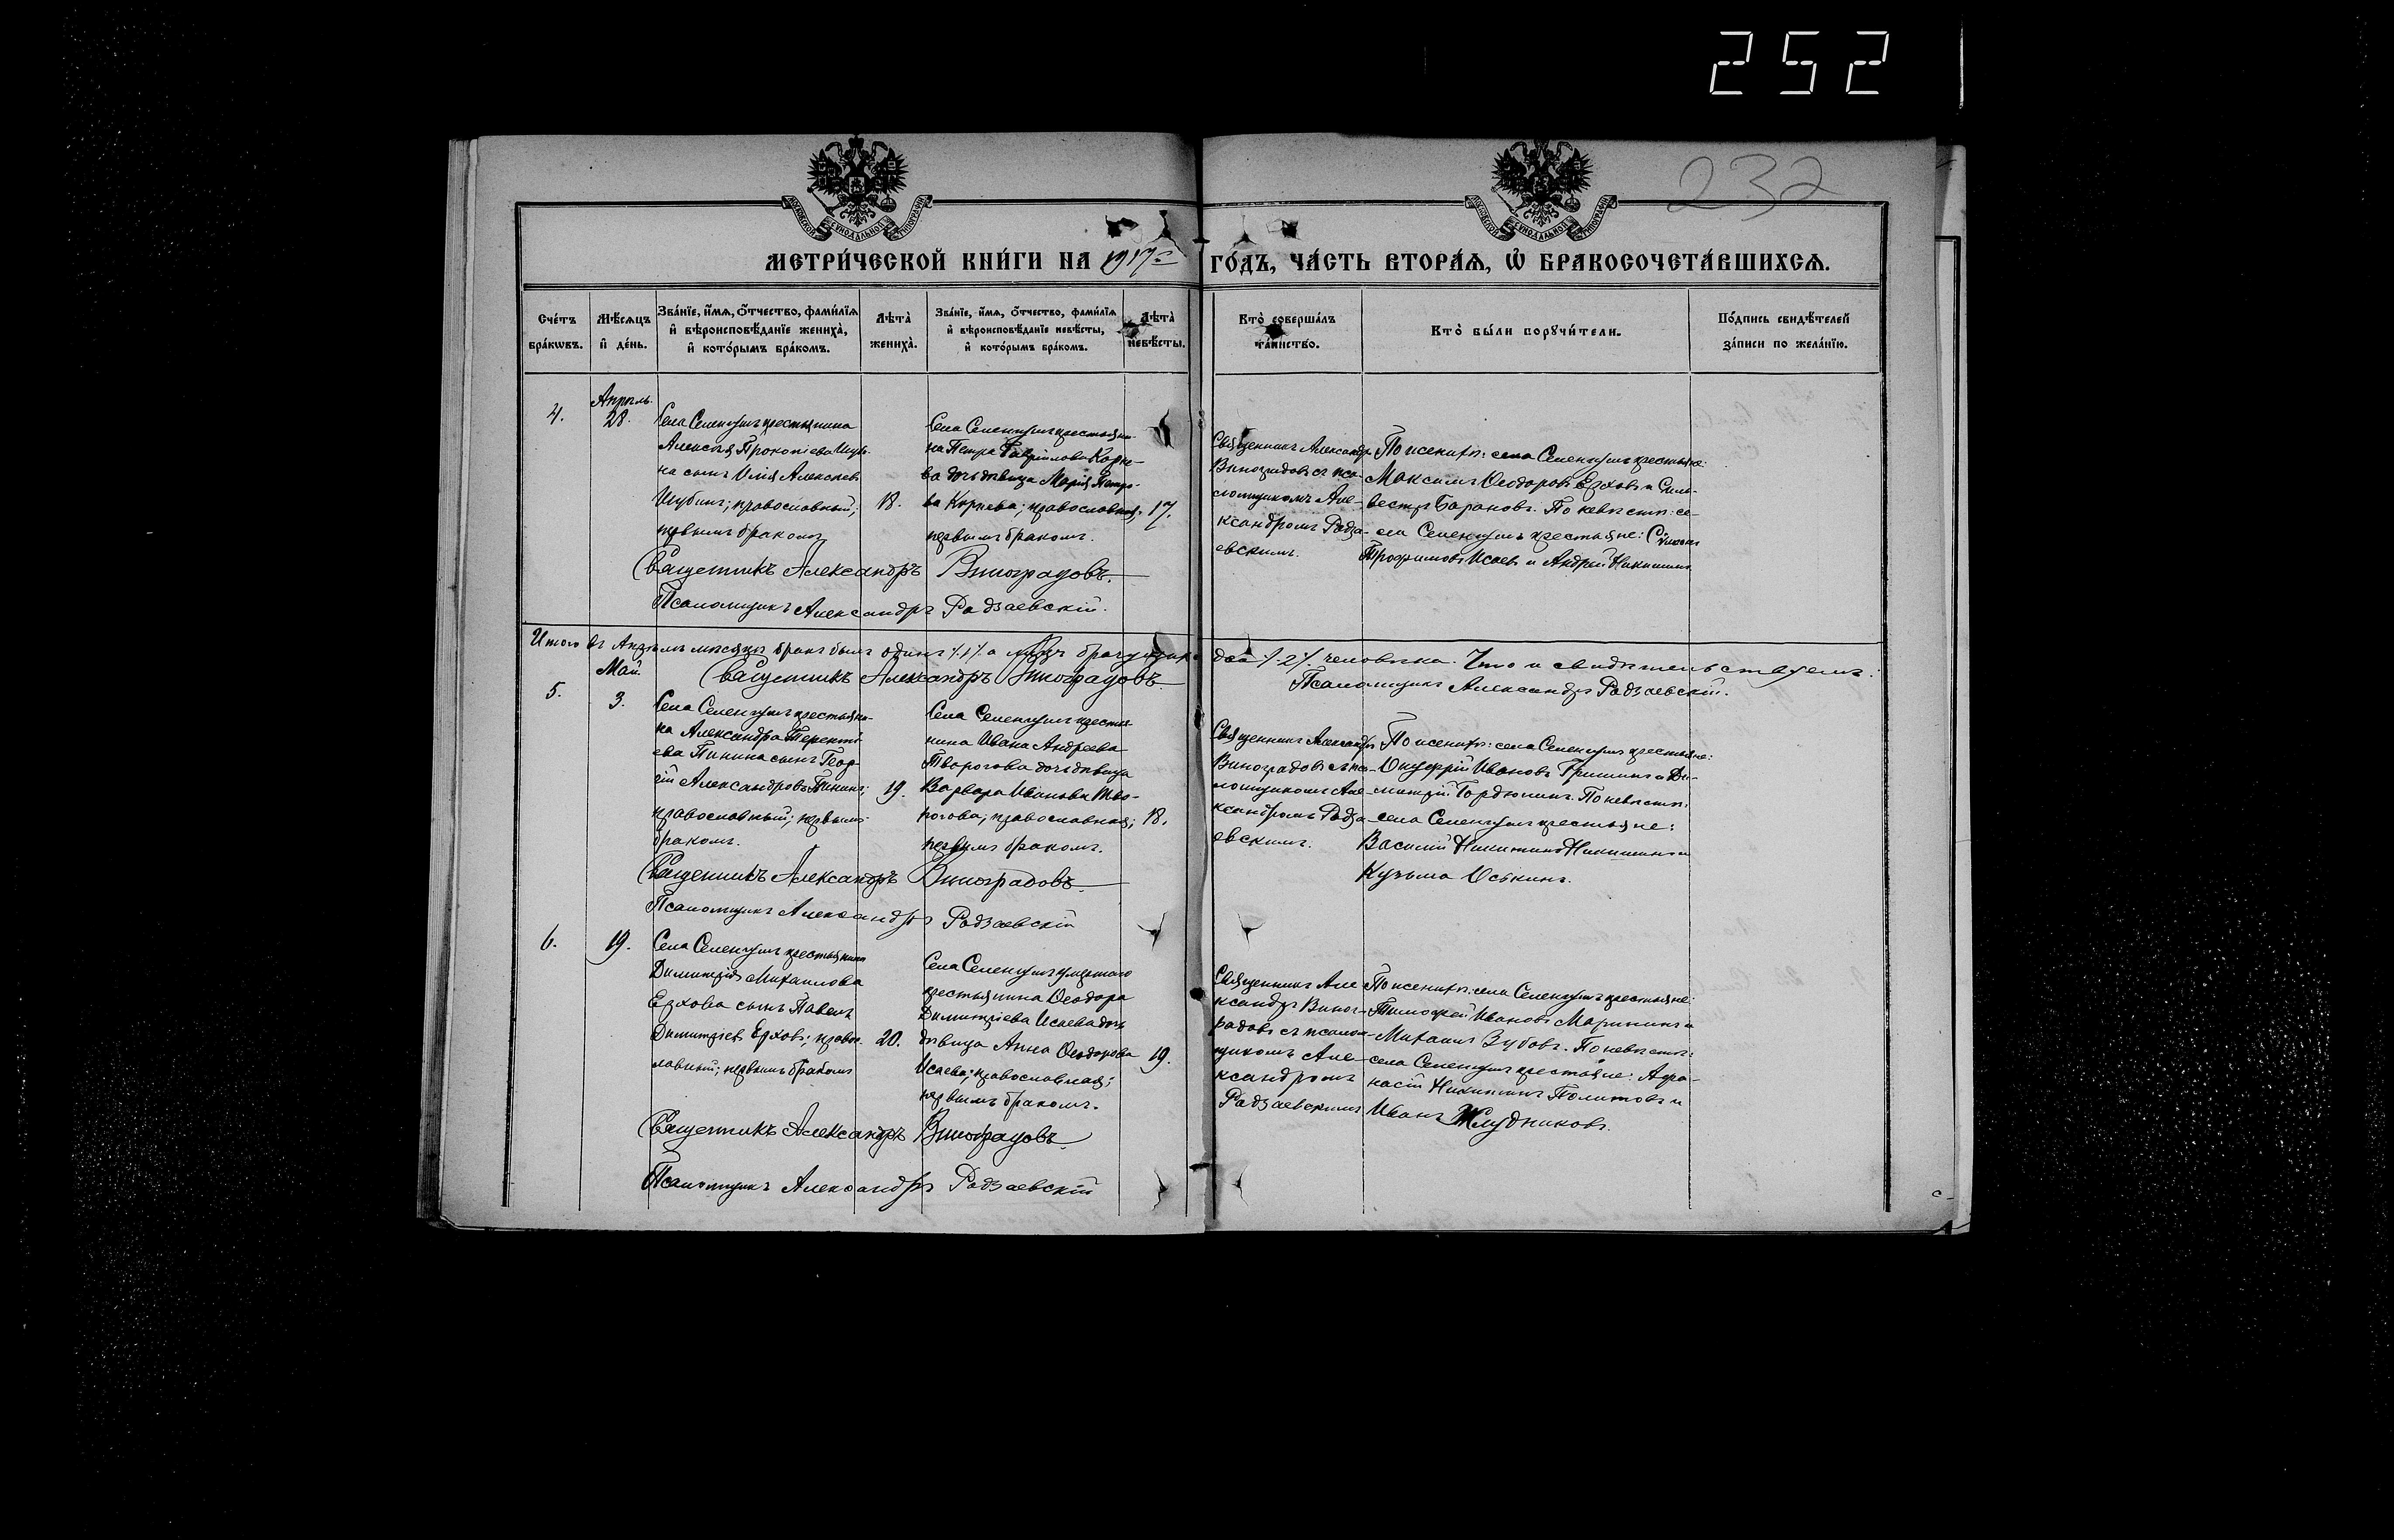 252
232
МЕТРИ́ЧЕСКОЙ КНИ́ГИ НА 1917 ГО́ДЪ, ЧА́СТЬ ВТОРА́Я, Ѡ҆ БРАКОСОЧЕТА́ВШИХСЯ.
Сче́тъ бра́кωвъ.
Мѣ́сяцъ и҆ де́нь.
Зва́нїе, и҆́мя, ѻ҆́тчество, фами́лїя и҆ вѣроисповѣ́данїе жениха̀, и҆ кото́рымъ бра́комъ.
Лѣта̀ жениха̀.
Зва́нїе, и҆́мя, ѻ҆́тчество, фами́лїя и҆ вѣроисповѣ́данїе невѣ́сты, и҆ кото́рымъ бра́комъ.
Лѣта̀ невѣ́сты.
Кто̀ соверша́лъ та́инство.
Кто̀ бы́ли порꙋчи́тели.
По́дпись свидѣ́телей за́писи по жела́нїю.
4.
Апрѣль.
28.
Села Селенгушъ крестьянина
Алексѣя Прокопіева Шуби-
на сынъ Илія Алексѣевъ
Шубинъ; православный;
первымъ бракомъ
18.
Села Селенгушъ крестьяни-
на Петра Гавріилова Корне-
ва дочь дѣвица Марія Петро-
ва Корнева; православная;
первымъ бракомъ.
17.
Священникъ Александръ
Виноградовъ съ пса-
ломщикомъ Але-
ксандромъ Радза-
евскимъ.
По женихѣ: села Селенгушъ крестьяне:
Максимъ Ѳеодоровъ Ерховъ и Силь-
вестръ Барановъ. По невѣстѣ: се-
ла Селенгушъ крестьяне:
Трофимовъ Исаевъ и Андрей Никишинъ
Священникъ Александръ Виноградовъ.
Псаломщикъ Александръ Радзаевскій.
Итого въ Апрѣлѣ мѣсяцѣ бракъ былъ одинъ /.1/. а лицъ два /.2/. человѣка. Что и свидѣтельствуемъ:
Священникъ Александръ Виноградовъ.
Псаломщикъ Александръ Радзаевскій.
Май.
5.
3.
Села Селенгушъ крестьяни-
на Александра Терентi-
ева Пинина сынъ Геор-
гій Александровъ Пининъ;
православный; первымъ
бракомъ.
19.
Села Селенгушъ крестья-
нина Ивана Андреева
Творогова дочь дѣвица
Варвара Иванова Тво-
рогова; православная;
первымъ бракомъ.
18.
Священникъ Александръ
Виноградовъ съ пса-
ломщикомъ Але-
ксандромъ Радза-
евскимъ.
По женихѣ: села Селенгушъ крестьяне:
Онуфрій Ивановъ Гришинъ и Ди-
митрій Гордюшинъ. По невѣстѣ:
села Селенгушъ крестьяне:
Василій Никитинъ Никишинъ и
Кузьма Оськинъ.
Священникъ Александръ Виноградовъ.
Псаломщикъ Александръ Радзаевскій
6.
19.
Села Селенгушъ крестьянина
Димитрія Михаилова
Ерхова сынъ Павелъ
Димитріевъ Ерховъ; правос-
лавный; первымъ бракомъ
20.
Села Селенгушъ умершаго
крестьянина Ѳеодора
Димитріева Исаева дочь
дѣвица Анна Ѳеодорова
Исаева; православная;
первымъ бракомъ.
19.
Священникъ Але-
ксандръ Виног-
радовъ съ псалом-
щикомъ Але-
ксандромъ
Радзаевскимъ
По женихѣ: села Селенгушъ крестьяне:
Тимофей Ивановъ Марининъ и
Михаилъ Зубовъ. По невѣстѣ:
села Селенгушъ крестьяне: Афа-
насій Никитинъ Политовъ и
Иванъ Жлудниковъ.
Священникъ Александръ Виноградовъ
Псаломщикъ Александръ Радзаевскій